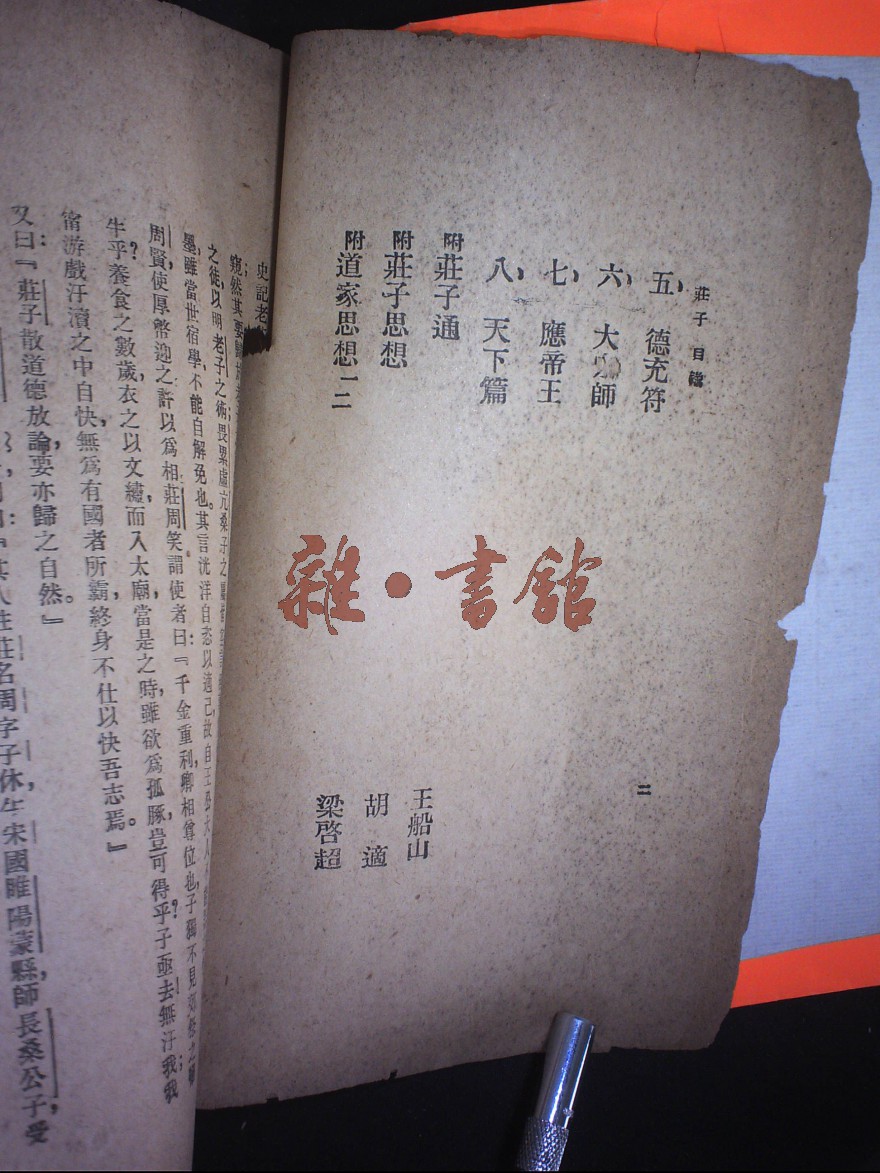 莊子 目錄
二
五、德充符
六、大師
七、應帝王
八、天下篇
附莊子通 王船山
附莊子思想 胡適
附道家思想一二 梁啓超
雜·書館
史記老
窺;然其要歸
之徒,以明老子之術,畏累虛亢桑子之
墨,雖當世宿學,不能自解免也。其言洸洋自恣以適己,故自王公大人
周賢,使厚幣迎之,許以爲相。莊周笑謂使者曰:『千金重利,卿相尊位也,子獨不見郊祭之
牛乎?養食之數歲,衣之以文繡,而入太廟,當是之時,雖欲爲孤豚,豈可得乎?子亟去,無汙我;我
甯游戲汙瀆之中自快,無爲有國者所羈,終身不仕以快吾志焉。』
又曰:『莊子散道德放論,要亦歸之自然。』
姓莊,名周,字子休,生宋國睢陽蒙縣,師長桑公子,受